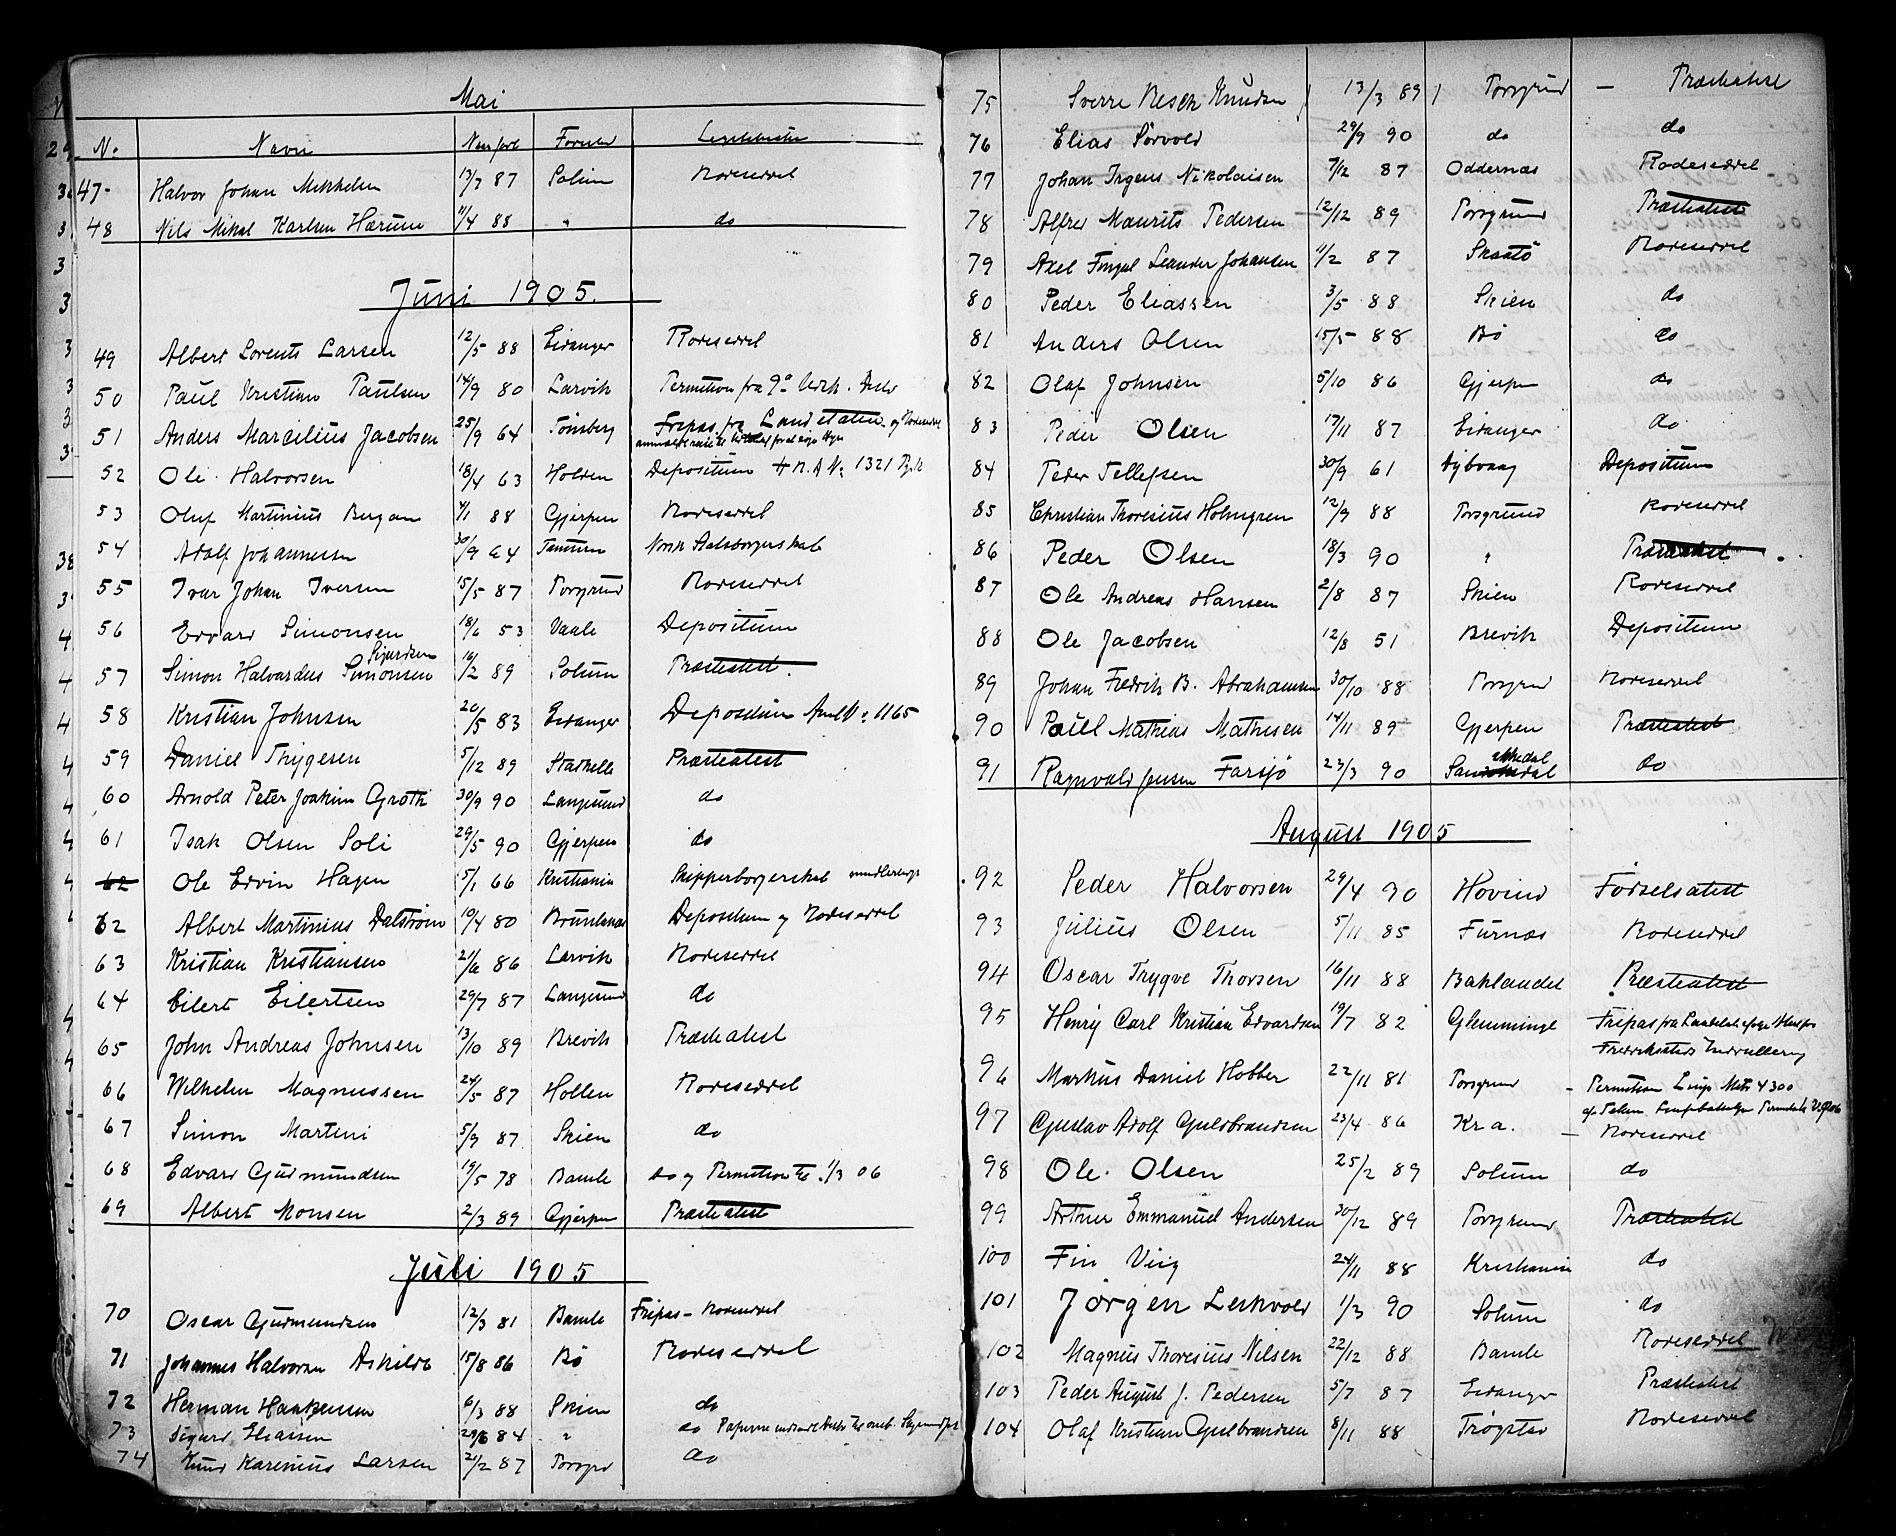 Mai
No Navn Naar født Fornem Legitimation
47 Halvor Johan Mikkelsen 13/7 87 Solum Rodeseddel
48 Nils Mikal Karlsen Hærum 11/4 88 " do
Juni 1905.
49 Albert Lorents Larsen 12/5 88 Eidanger Rodeseddel
50 Paul Kristian Paulsen 14/9 80 Larvik Permition fra
51 Anders Marcilius Jacobsen 25/9 64 Tønsberg Fripas fra Landetaten og Rodeseddel
52 Ole Halvorsen 18/4 63 Holden Depositum A No 1321
53 Oluf Martinius Bergan 4/1 88 Gjerpen Rodeseddel
54 Adolf Johannesen 30/9 64 Norsk Statsborgerskab
55 Ivar Johan Iversen 15/5 87 Porsgrund Rodeseddel
56 Edvard Simonsen 18/6 53 Vaale Depositum
Sigurdsen
57 Simon Halvardus Simonsen 16/2 89 Solum Præsteatest.
58 Kristian Johnsen 20/5 83 Eidanger Depositum No 1165
59 Daniel Thygesen 5/12 89 Stathelle Præsteatest
60 Arnold Peter Joakim Groth 30/9 90 Langesund do
61 Isak Olsen Soli 29/5 90 Gjerpen do
62 Ole Edvin Hagen 5/1 66 Kristiania Skipperborgerskab
62 Albert Martinius Dalstrøm 10/4 80 Brunlanæs Depositum og Rodeseddel
63 Kristian Kristiansen 21/6 86 Larvik Rodeseddel
64 Eilert Eilertsen 29/7 87 Langesund do
65 John Andreas Johnsen 13/10 89 Brevik Præsteatest
66 Wilhelm Magnussen 24/5 87 Hollen Rodeseddel
67 Simon Martini 5/9 87 Skien do
68 Edvard Gudmundsen 19/5 78 Bamle do og Permition til 1/3 06
69 Albert Monsen 2/3 89 Gjerpen Præsteatest
Juli 1905
70 Oscar Gudmundsen 12/3 81 Bamle Fripas - Rodeseddel
71 Johannes Halvorsen Askilds 15/8 86 Bø Rodeseddel
72 Herman Haakensen 6/3 88 Skien do
73 Sigurd Eliasen 29/8 84 " do Papirerne
74 Knud Karenius Larsen 21/2 87 Porsgrd do
75 Sverre Resch Knudsen 13/3 89 Porsgrund - Præsteatest
76 Elias Sørvold 29/9 90 do do
77 Johan Irgens Nikolaisen 7/12 87 Oddernæs Rodeseddel
78 Alfred Maurits Pedersen 12/12 89 Porsgrund Præsteatest
79 Axel Fingal Leander Johansen 11/2 87 Skaatø Rodeseddel
80 Peder Eliassen 3/5 88 Skien do
81 Anders Olsen 15/5 88 Bø do
82 Olaf Johnsen 5/10 86 Gjerpen do
83 Peder Olsen 17/11 87 Eidanger do
84 Peder Tellefsen 30/9 61 Dybvaag Depositum
85 Christian Thoresius Holmgren 12/9 88 Porsgrund Rodeseddel
86 Peder Olsen 18/3 90 " Præsteatest
87 Ole Andreas Hansen 2/8 87 Skien Rodeseddel
88 Ole Jacobsen 12/8 51 Brevik Depositum
89 Johan Fredrik B. Abrahamsen 30/10 88 Porsgrund Rodeseddel
90 Paul Mathias Mathisen 14/11 89 Gjerpen Præsteatest
91 Ragnvald Jensen Farsjø 23/3 90 do
August 1905
92 Peder Halvorsen 29/4 90 Hovind Fødselsatest
93 Julius Olsen 5/11 85 Furnæs Rodeseddel
94 Oscar Trygve Thorsen 16/11 88 Baklandet Præsteatest
95 Henry Carl Kristian Edvardsen 19/7 82 Glemminge Fripas fra
Fredrikstads Indrullering
96 Markus Daniel Hobber 22/11 81 Porsgrund - Permition
97 Gustav Adolf Guldbrandsen 23/4 86 Kra. - Rodeseddel
98 Ole Olsen 25/2 89 Solum do
99 Arthur Emmanuel Andersen 30/12 89 Porsgrund Præsteatest
100 Fin Viig 24/11 88 Kristiania do
101 Jørgen Leikvold 1/3 90 Solum do
102 Magnus Thoresius Nilsen 22/12 88 Bamle Rodeseddel
103 Peder August J. Pedersen 5/7 87 Eidanger Præsteatest
104 Olaf Kristian Gulbrandsen 8/11 88 Trøgstad Rodeseddel